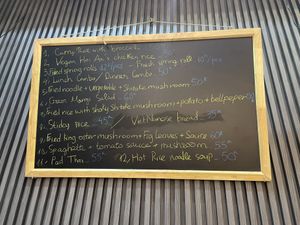 1. Curry Rice with broccoli
2. Vegan Hai Nan chicken rice
3. Fried spring rolls / Fresh spring roll 10/pcs
4. Lunch Combo / Dinner Combo 50
5. Fried noodle + vegetable + shitake mushroom 50
6. Green Mango Salad 60
7. Fried rice with shitake mushroom + potato + bellpeper
8. Sticky rice 45 / VietNamese bread 35
9. Fried king oster mushroom + Fig leaves + Sauce 60
10. Spaghetti + tomato sauce + mushroom 55
11. Pad Thai 55 12. Hot Rice noodle soup 50